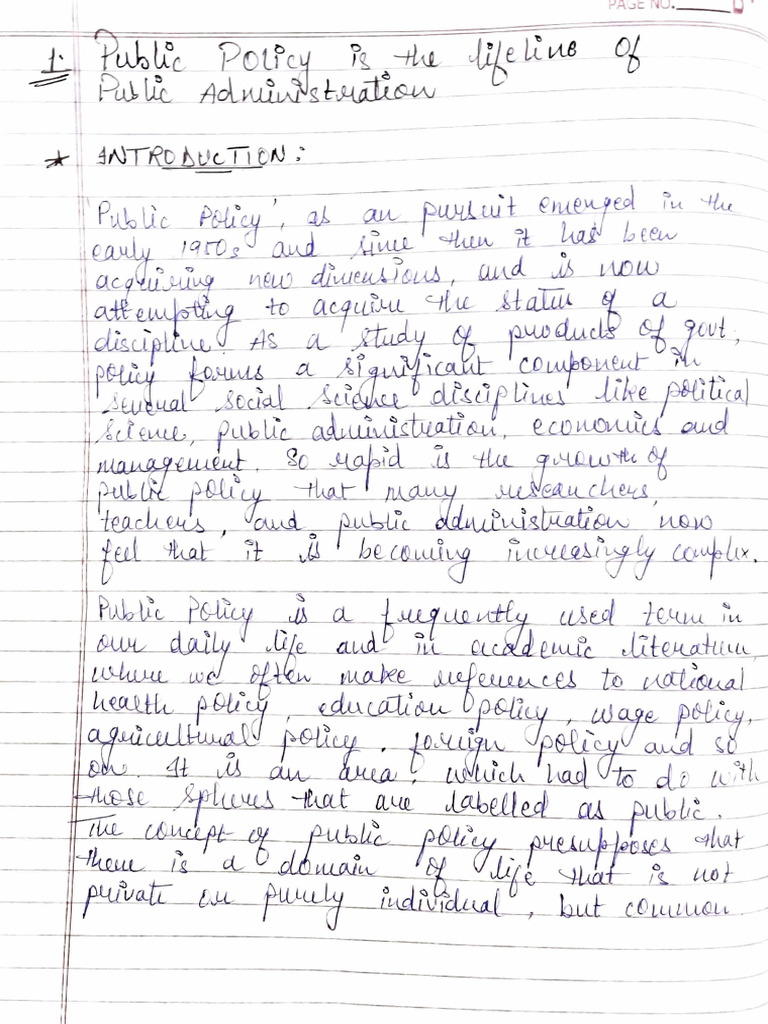 PAGE NO.
1. Public Policy is the lifeline of
Public Administration
* INTRODUCTION:
'Public Policy', as an pursuit emerged in the
early 1950s and since then it has been
acquiring new dimensions, and is now
attempting to acquire the status of a
discipline. As a study of products of govt,
policy forms a significant component in
several social science disciplines like political
science, public administration, economics and
management. So rapid is the growth of
public policy that many researchers,
teachers, and public administration now
feel that it is becoming increasingly complex.
Public Policy is a frequently used term in
our daily life and in academic literature,
where we often make references to national
health policy, education policy, wage policy,
agricultural policy, foreign policy and so
on. It is an area, which had to do with
those spheres that are labelled as public.
The concept of public policy presupposes that
there is a domain of life that is not
private or purely individual, but common.